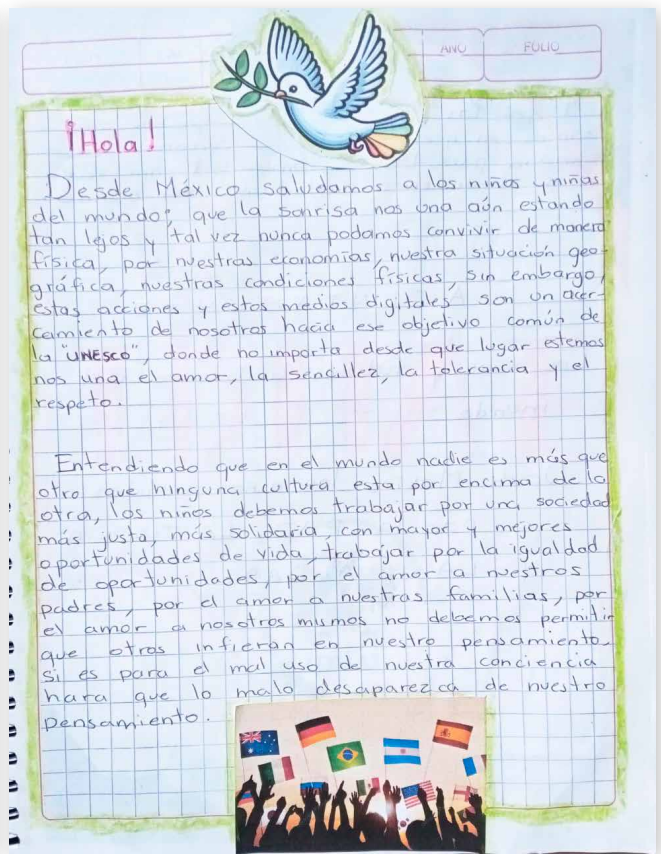 AÑO FOLIO
¡Hola!
Desde México saludamos a los niños y niñas
del mundo, que la sonrisa nos una aún estando
tan lejos y tal vez nunca podamos convivir de manera
física, por nuestras economías, nuestra situación geo-
gráfica, nuestras condiciones físicas, sin embargo,
estas acciones y estos medios digitales son un acer-
camiento de nosotros hacia ese objetivo común de
la "UNESCO", donde no importa desde que lugar estemos
nos una el amor, la sencillez, la tolerancia y el
respeto.
Entendiendo que en el mundo nadie es más que
otro que ninguna cultura esta por encima de la
otra, los niños debemos trabajar por una sociedad
más justa, más solidaria, con mayor y mejores
oportunidades de vida, trabajar por la igualdad
de oportunidades, por el amor a nuestros
padres, por el amor a nuestras familias, por
el amor a nosotros mismos no debemos permitir
que otros infieran en nuestro pensamiento
si es para el mal uso de nuestra conciencia
hara que lo malo desaparezca de nuestro
pensamiento.